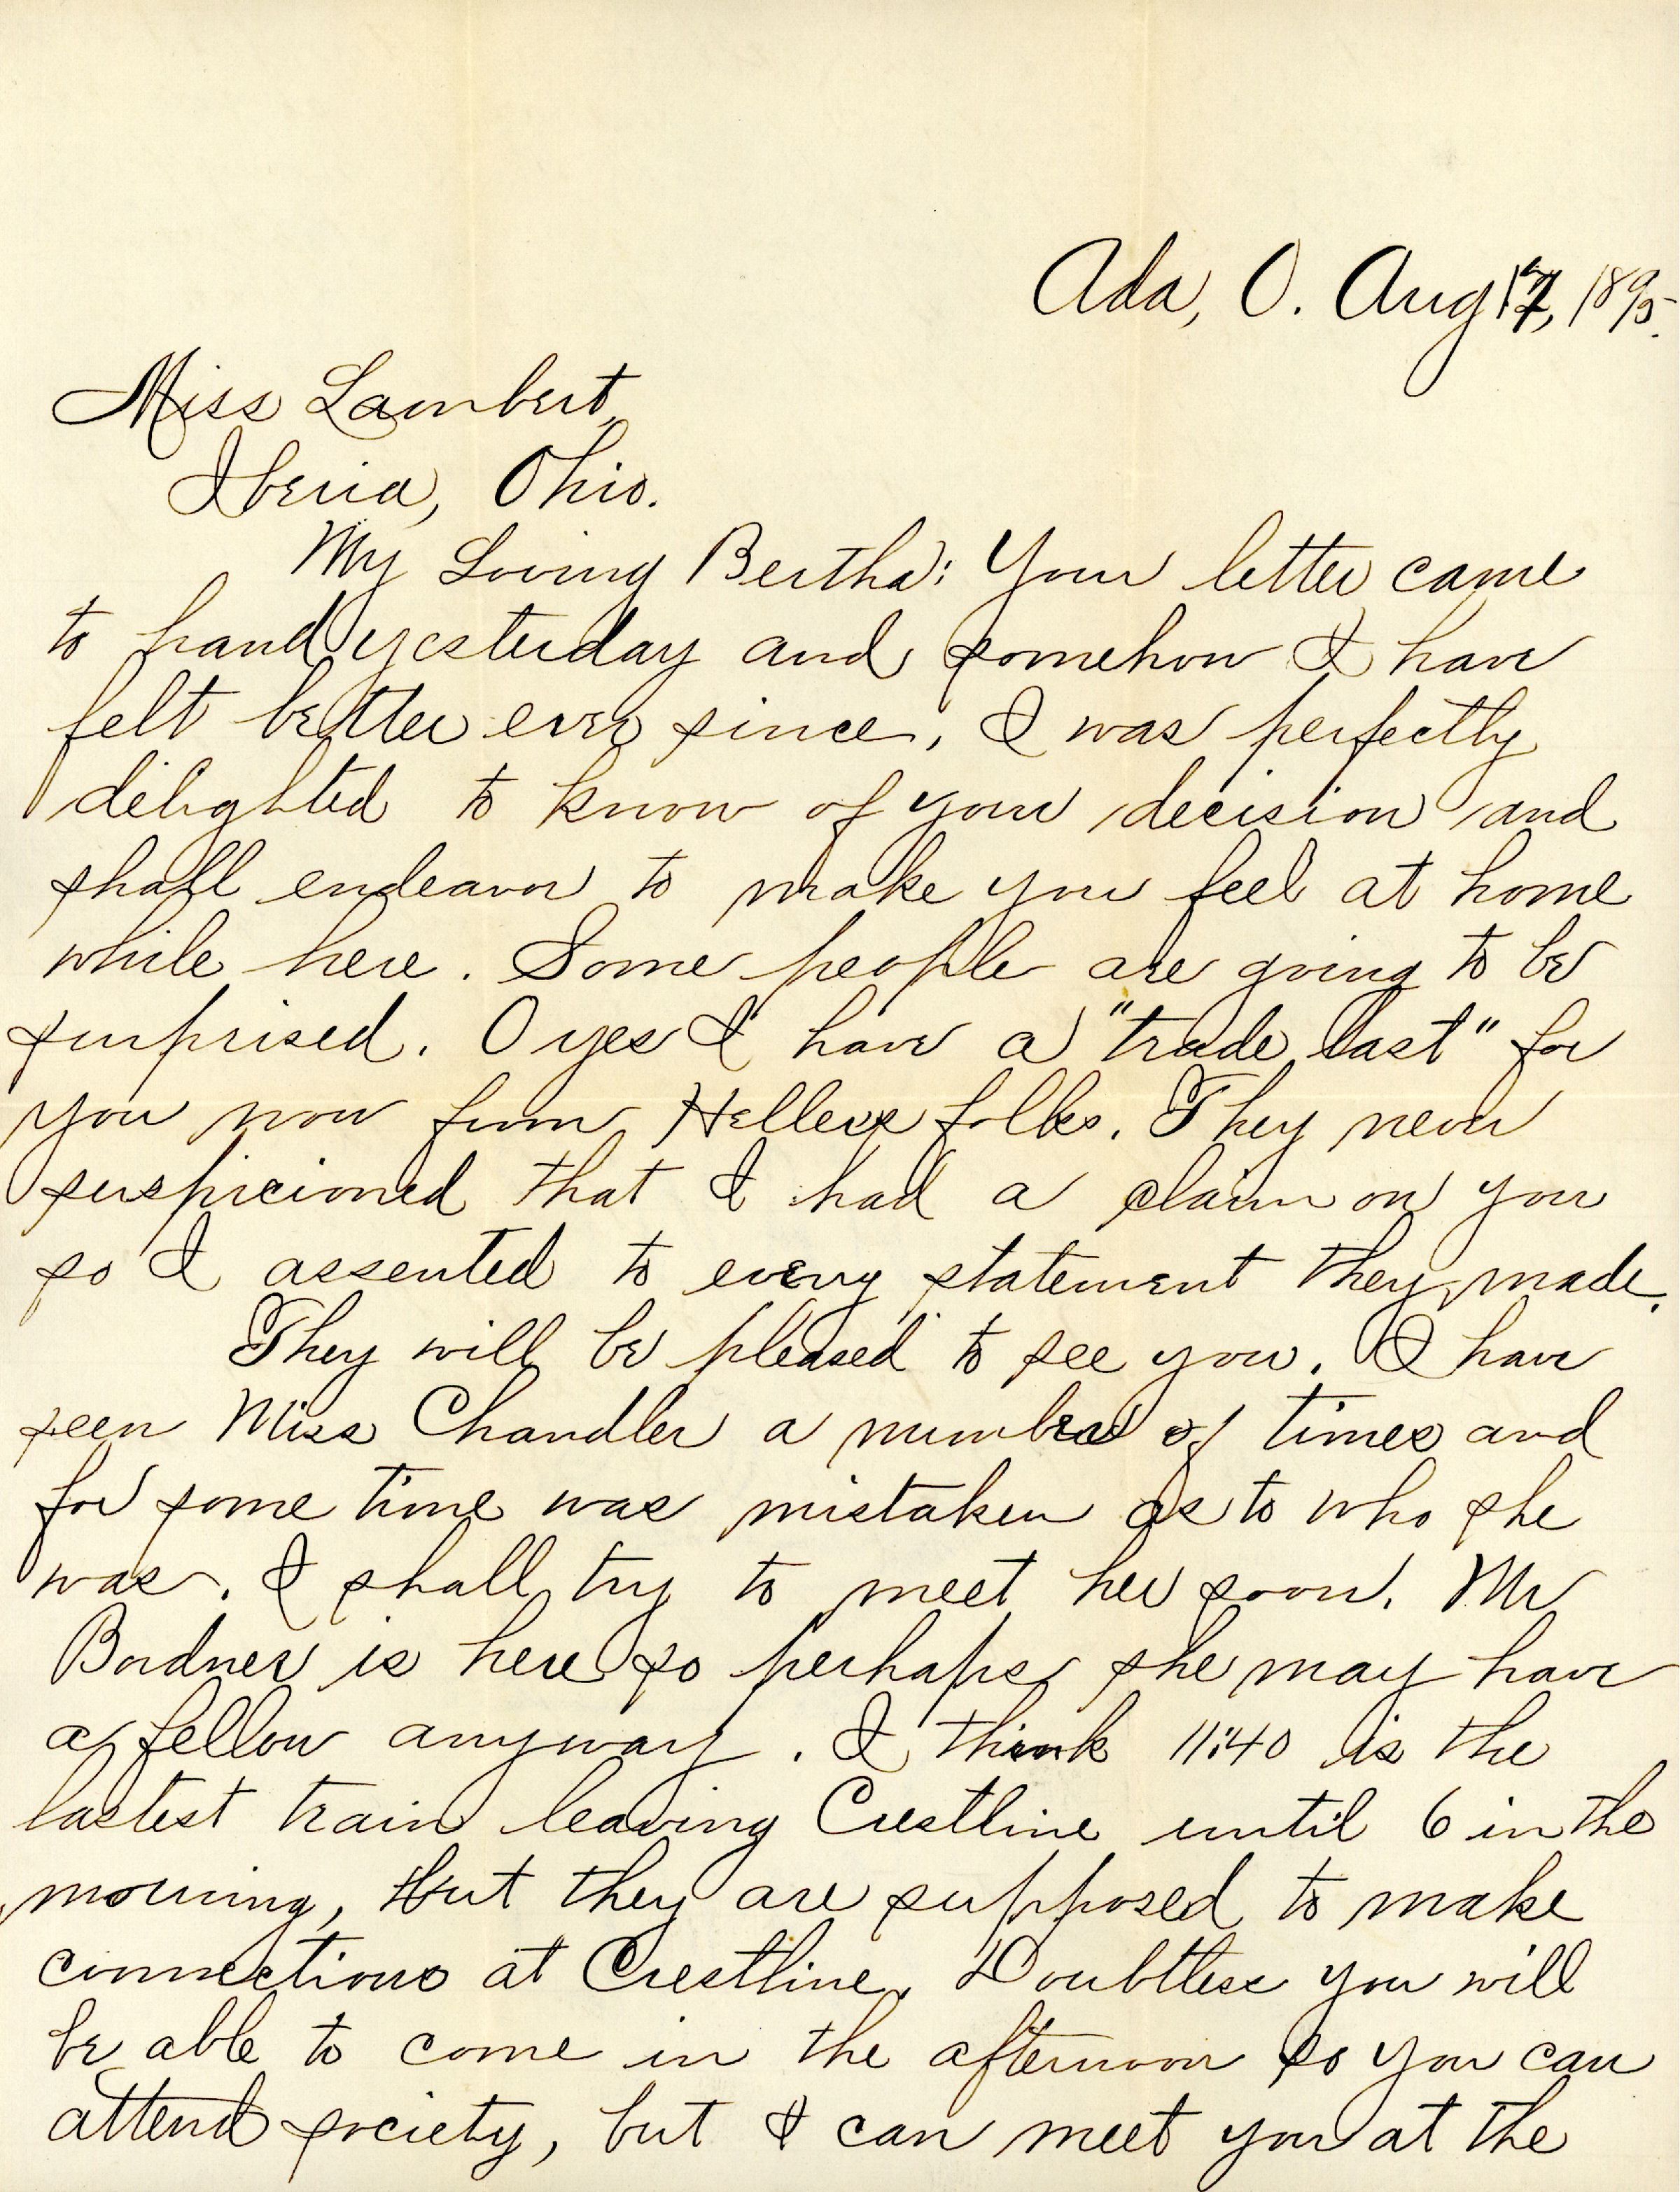 Ada, O. Aug 17, 1895.
Miss Lambert,
Iberia, Ohio.
My Loving Bertha: Your letter came
to hand yesterday and somehow I have
felt better ever since, I was perfectly
delighted to know of your decision and
shall endeavor to make you feel at home
while here. Some people are going to be
surprised. O yes I have a "trade last" for
you now from Hellers folks. They never
suspicioned that I had a claim on you
so I assented to every statement they made.
They will be pleased to see you. I have
seen Miss Chandler a number of times and
for some time was mistaken as to who she
was. I shall try to meet her soon. Mr
Bordner is here so perhaps she may have
a fellow anyway. I think 11:40 is the
lastest train leaving Crestline until 6 in the
morning, but they are supposed to make
connections at Crestline. Doubtless you will
be able to come in the afternoon so you can
attend society, but I can meet you at the